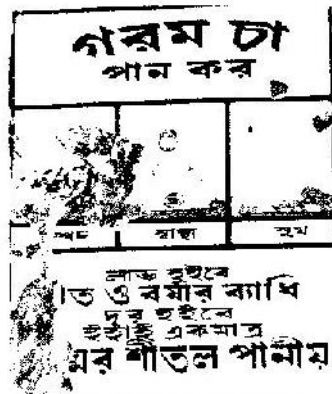 গরম চা
পান কর
স্বাস্থ্য সুখ
লাভ হইবে
ও বর্ষার ব্যাধি
দূর হইবে
ইহাই একমাত্র
শীতল পানীয়